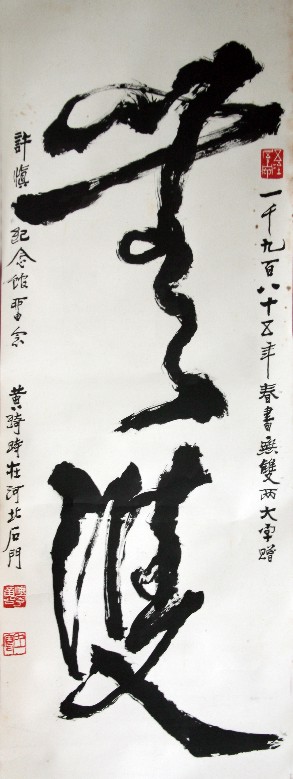 無雙
一千九百八十五年春書無雙兩大字贈
許慎紀念館留念
黃綺時在河北石門